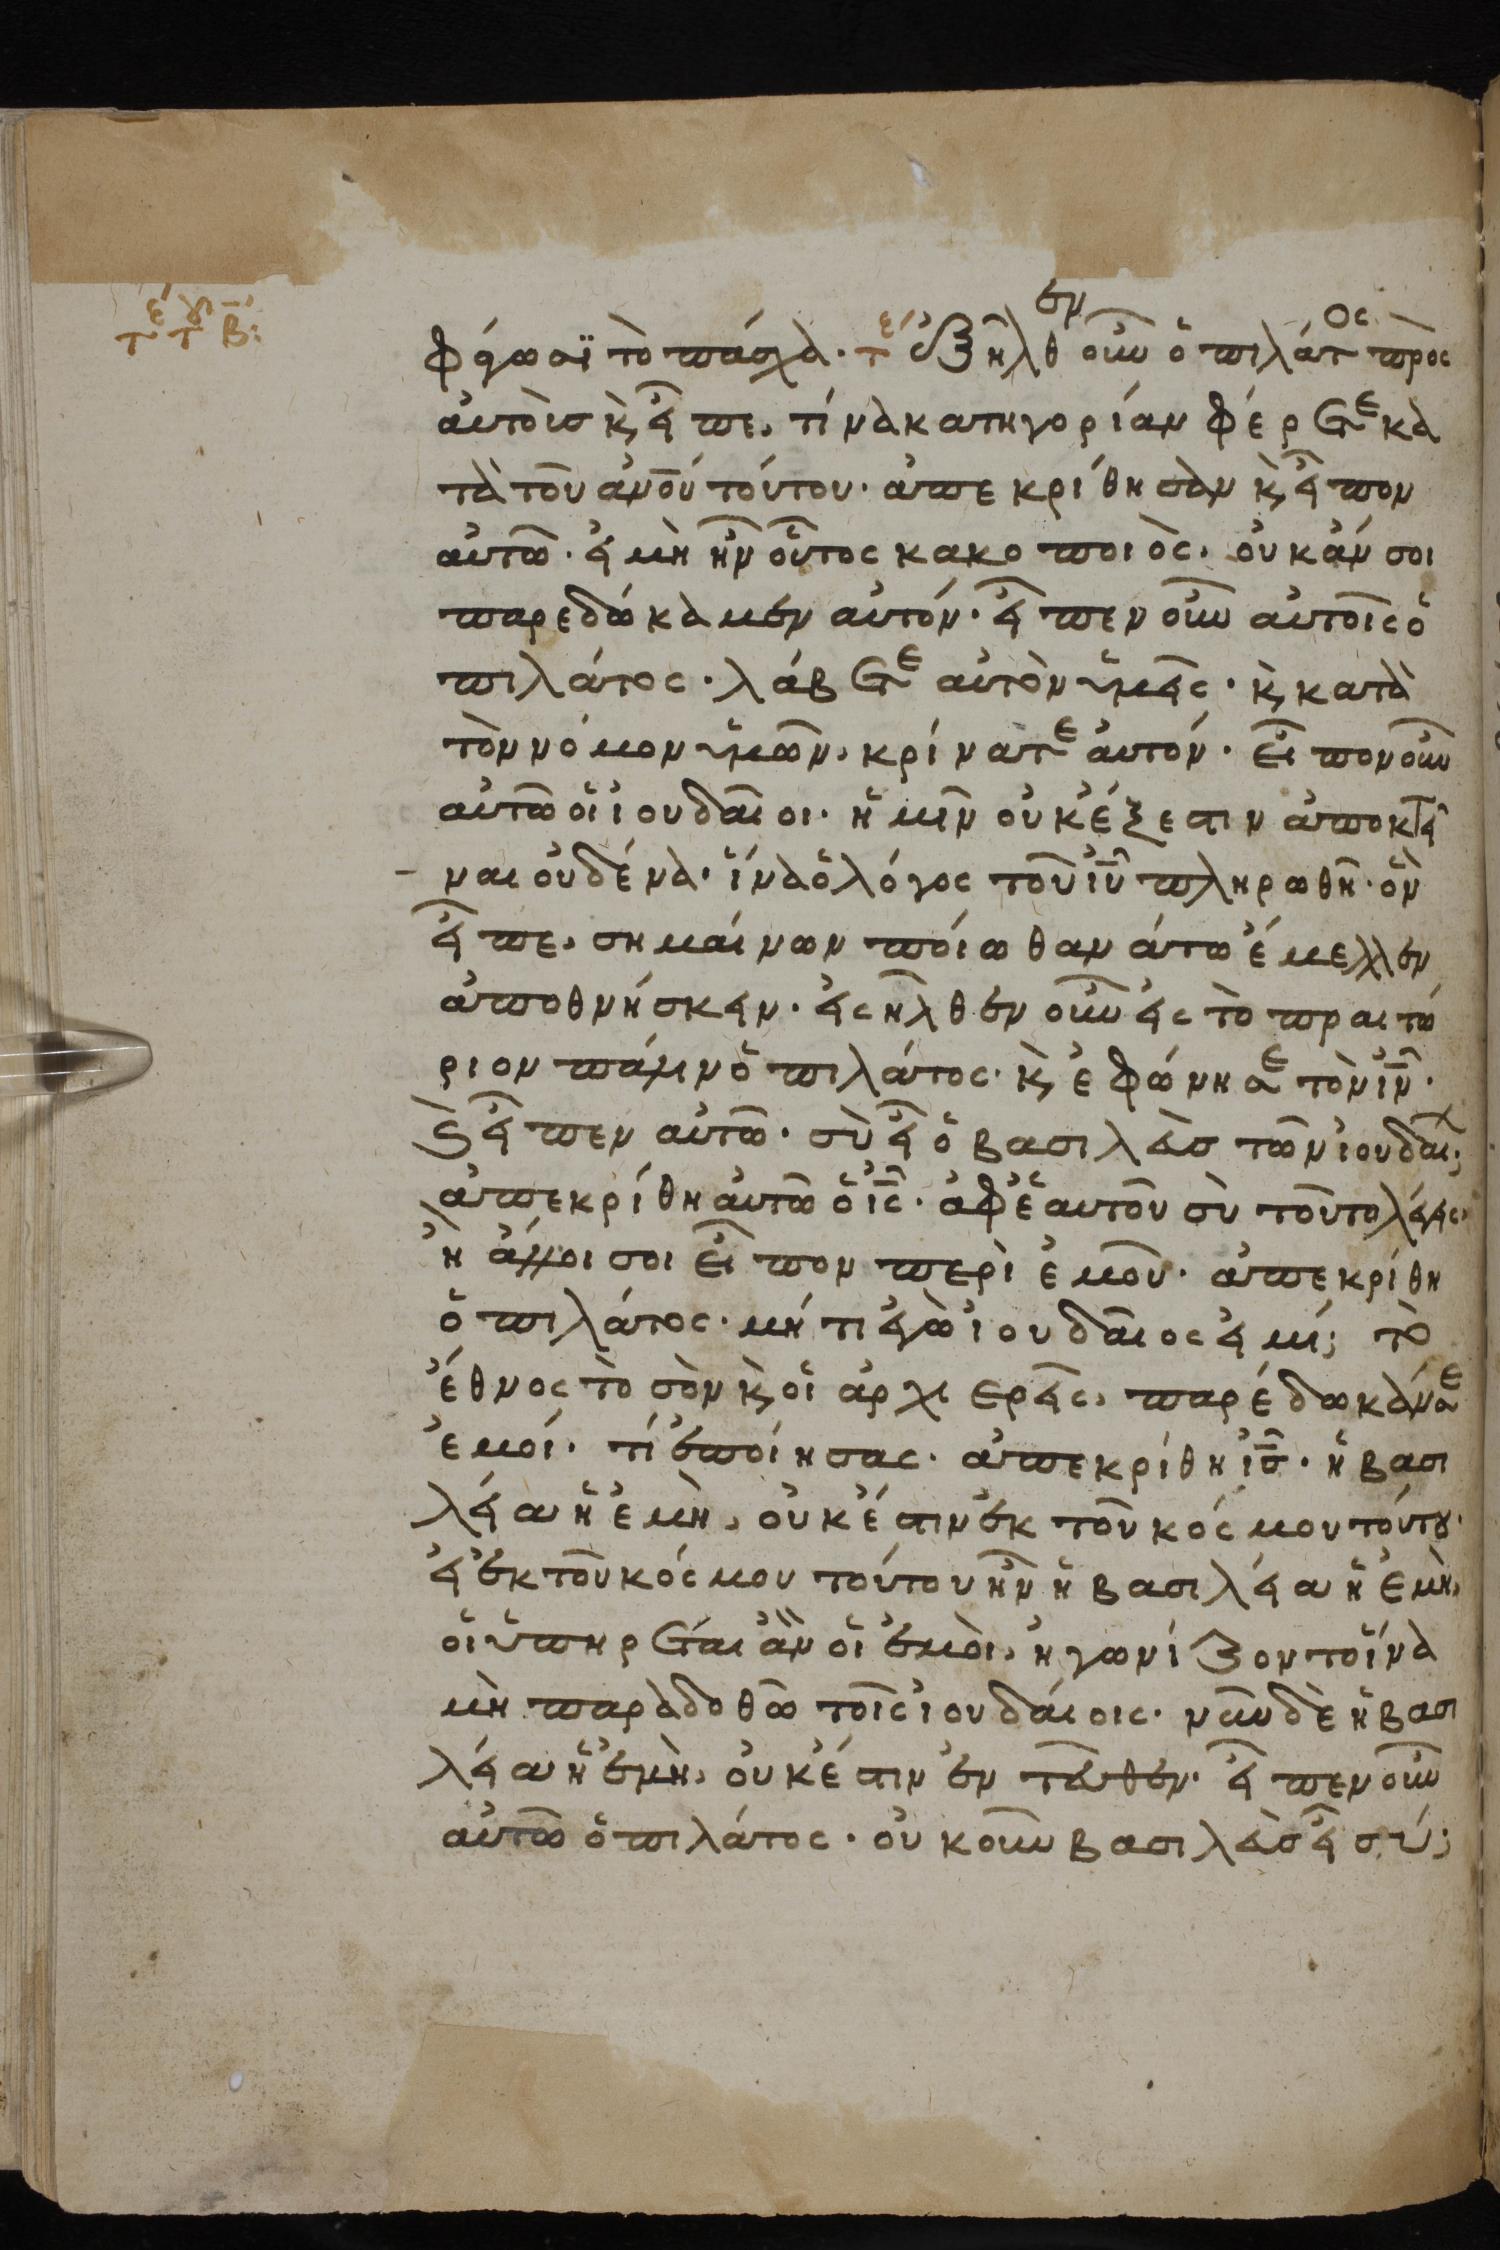 τε τγ β:
φάγωσϊ τὸ πάσχὰ· τε ἐξῆλθεν οὖν ὁ πιλάτος πρὸς
ἀυτοὺσ κ̀ εἶπε, τίνὰ κατηγορίαν φέρετε κὰ
τὰ τοῦ ἀνο̅ύ τούτου· ἀπεκρίθησὰν κ̀ εἶπον
ἀυτῶ· εἰ μὴ ἦν οὗτος κακοποιὸς, ὀυκ ἄν σοι
παρεδώκὰμεν ἀυτόν· εἶπεν οὖν ἀυτοῖς ὁ
πιλάτος· λάβετε ἀυτὸν ὑμεῖς· κ̀ κατὰ
τὸν νόμον ὑμῶν, κρίνατε ἀυτόν· εἶπον οὖν
ἀυτῶ ὁἱ ἰουδαῖοι· ἡμῖν ὀυκ ἔξεστιν ἀποκτεῖ
ναι ὀυδένὰ· ἵνὰ ὁ λόγος τοῦ ἰ̅υ̅ πληρωθῆ· ὃν
εἶπε, σημαίνων ποίω θανάτω ἔμελλεν
ἀποθνήσκειν· εἰσῆλθεν οὖν εἰς τὸ πραιτώ
ριον πάλιν ὁ πιλάτος· κ̀ ἐφώνησε τὸν ἰ̅ν̅·
κ̀ εἶπεν ἀυτῶ· σὺ εἶ ὁ βασιλεὺσ τῶν ἰουδαί;
ἀπεκρίθη ἀυτῶ ὁ ἰ̅ς̅· ἀφ' ἑαυτοῦ σὺ τοῦτο λέγεις,
ἢ ἄλλοι σοι εἶπον περὶ ἐμοῦ· ἀπεκρίθη
ὁ πιλάτος· μήτι ἐγὼ ἰουδαῖος εἰμί; τὸ
ἔθνος τὸ σὸν κ̀ ὁἱ ἀρχιερεῖς, παρέδωκάν σε
ἐμοί· τί ἐποίησας· ἀπεκρίθη ἰ̅σ̅· ἡ βασι
λεία ἡ ἐμὴ, ὀυκ ἔστιν ἐκ τοῦ κόσμου τούτου·
εἰ ἐκ τοῦ κόσμου τούτου ἦν ἡ βασιλεία ἡ ἐμὴ,
ὁἱ ὑπηρέται ἂν ὁἱ ἐμοὶ, ἠγωνίζοντο ἵνὰ
μὴ παρὰδοθῶ τοῖς ἰουδάιοις· νῦν δὲ ἡ βασι
λεία ἡ ἐμὴ, ὀυκ ἔστιν ἐντεῦθεν· εἶπεν οὖν
ἀυτῶ ὁ πιλάτος· ὀυκοῦν βασιλεὺσ εἶ σύ;